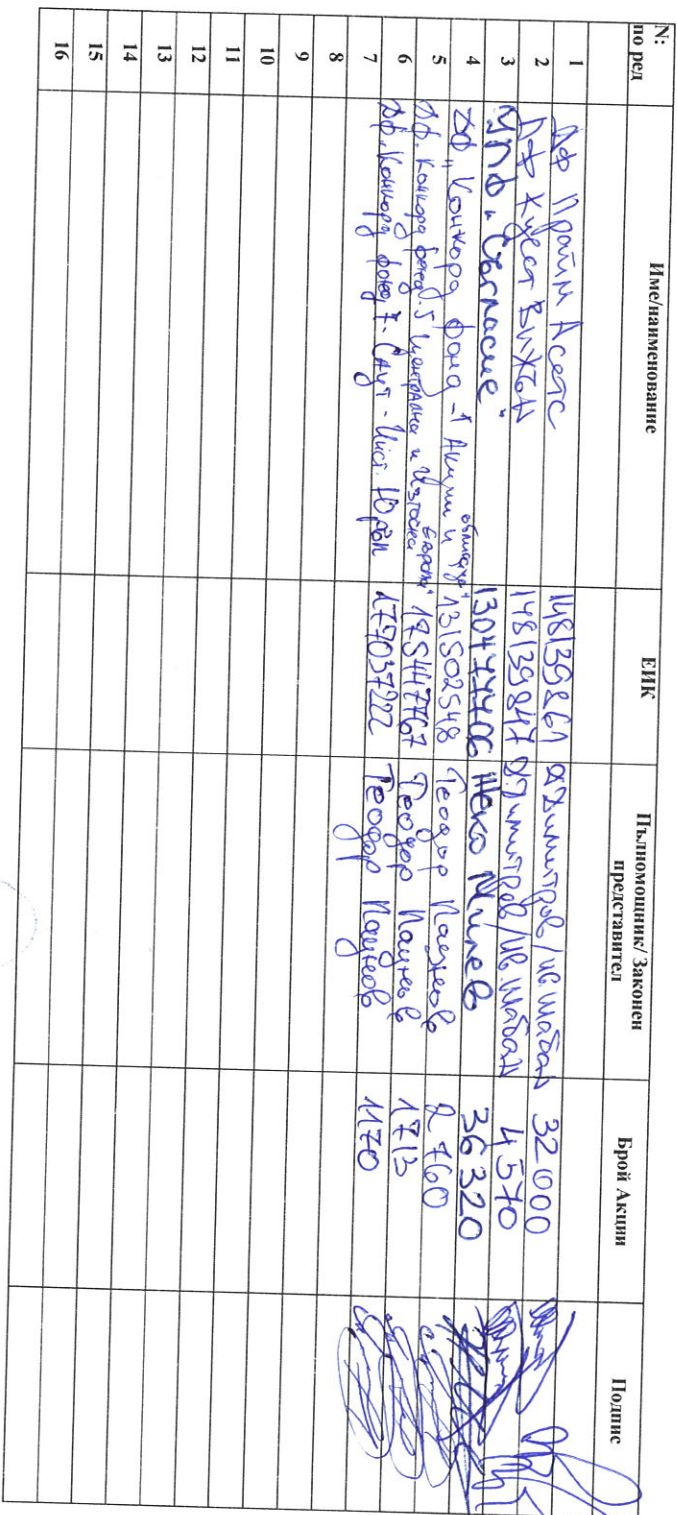 N: по ред Име/наименование ЕИК Пълномощник/ Законен представител Брой Акции Подпис
1 ДФ Прайм Асетс 148139861 Димитров/Ив. Шабан 32000
2 ДФ Куест Вижън 148139847 Димитров/Ив. Шабан 4570
3 УПФ "Съгласие" 130477406 Милев 36320
4 ДФ "Конкорд фонд - 1 Акции и облигации" 131502548 Теодор Паунов 2760
5 ДФ. Конкорд фонд. 5 Централна и Източна Европа" 175447767 Теодор Паунов 1713
6 ДФ. Конкорд фонд 7 - Саут - Ийст. Юръп 177037222 Теодор Паунов 1170
7
8
9
10
11
12
13
14
15
16